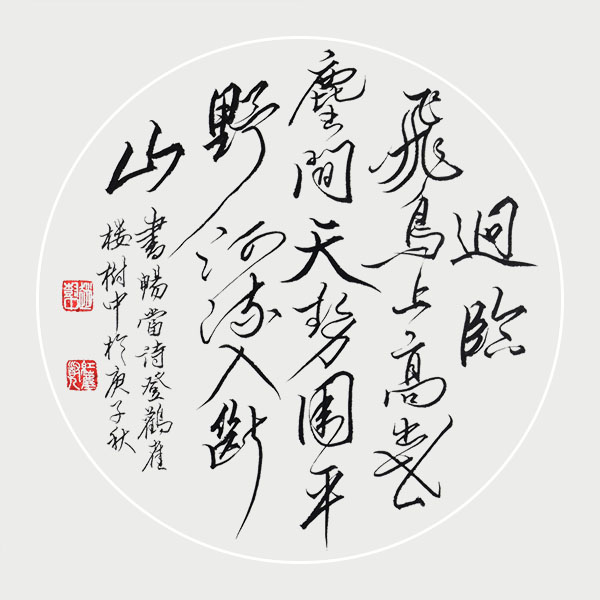 迥臨
飛鳥上高出世
塵間天勢圍平
野河流入斷
山
書暢當詩登鸛雀
樓樹中於庚子秋